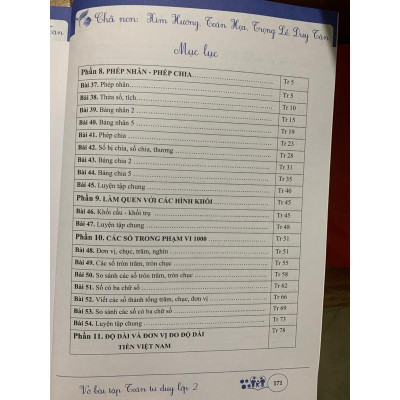 Chả non: Kim Hương, Toán Họa, Trọng Lê Duy Tân
Mục lục
Phần 8. PHÉP NHÂN - PHÉP CHIA Tr 5
Bài 37. Phép nhân Tr 5
Bài 38. Thừa số, tích Tr 10
Bài 39. Bảng nhân 2 Tr 15
Bài 40. Bảng nhân 5 Tr 19
Bài 41. Phép chia Tr 23
Bài 42. Số bị chia, số chia, thương Tr 28
Bài 43. Bảng chia 2 Tr 31
Bài 44. Bảng chia 5 Tr 35
Bài 45. Luyện tập chung Tr 40
Phần 9. LÀM QUEN VỚI CÁC HÌNH KHỐI Tr 45
Bài 46. Khối cầu - khối trụ Tr 45
Bài 47. Luyện tập chung Tr 48
Phần 10. CÁC SỐ TRONG PHẠM VI 1000 Tr 51
Bài 48. Đơn vị, chục, trăm, nghìn Tr 51
Bài 49. Các số tròn trăm, tròn chục Tr 55
Bài 50. So sánh các số tròn trăm, tròn chục Tr 58
Bài 51. Số có ba chữ số Tr 62
Bài 52. Viết các số thành tổng trăm, chục, đơn vị Tr 66
Bài 53. So sánh các số có ba chữ số Tr 69
Bài 54. Luyện tập chung Tr 73
Phần 11. ĐỘ DÀI VÀ ĐƠN VỊ ĐO ĐỘ DÀI Tr 78
TIỀN VIỆT NAM
Vở bài tập Toán tư duy lớp 2
171